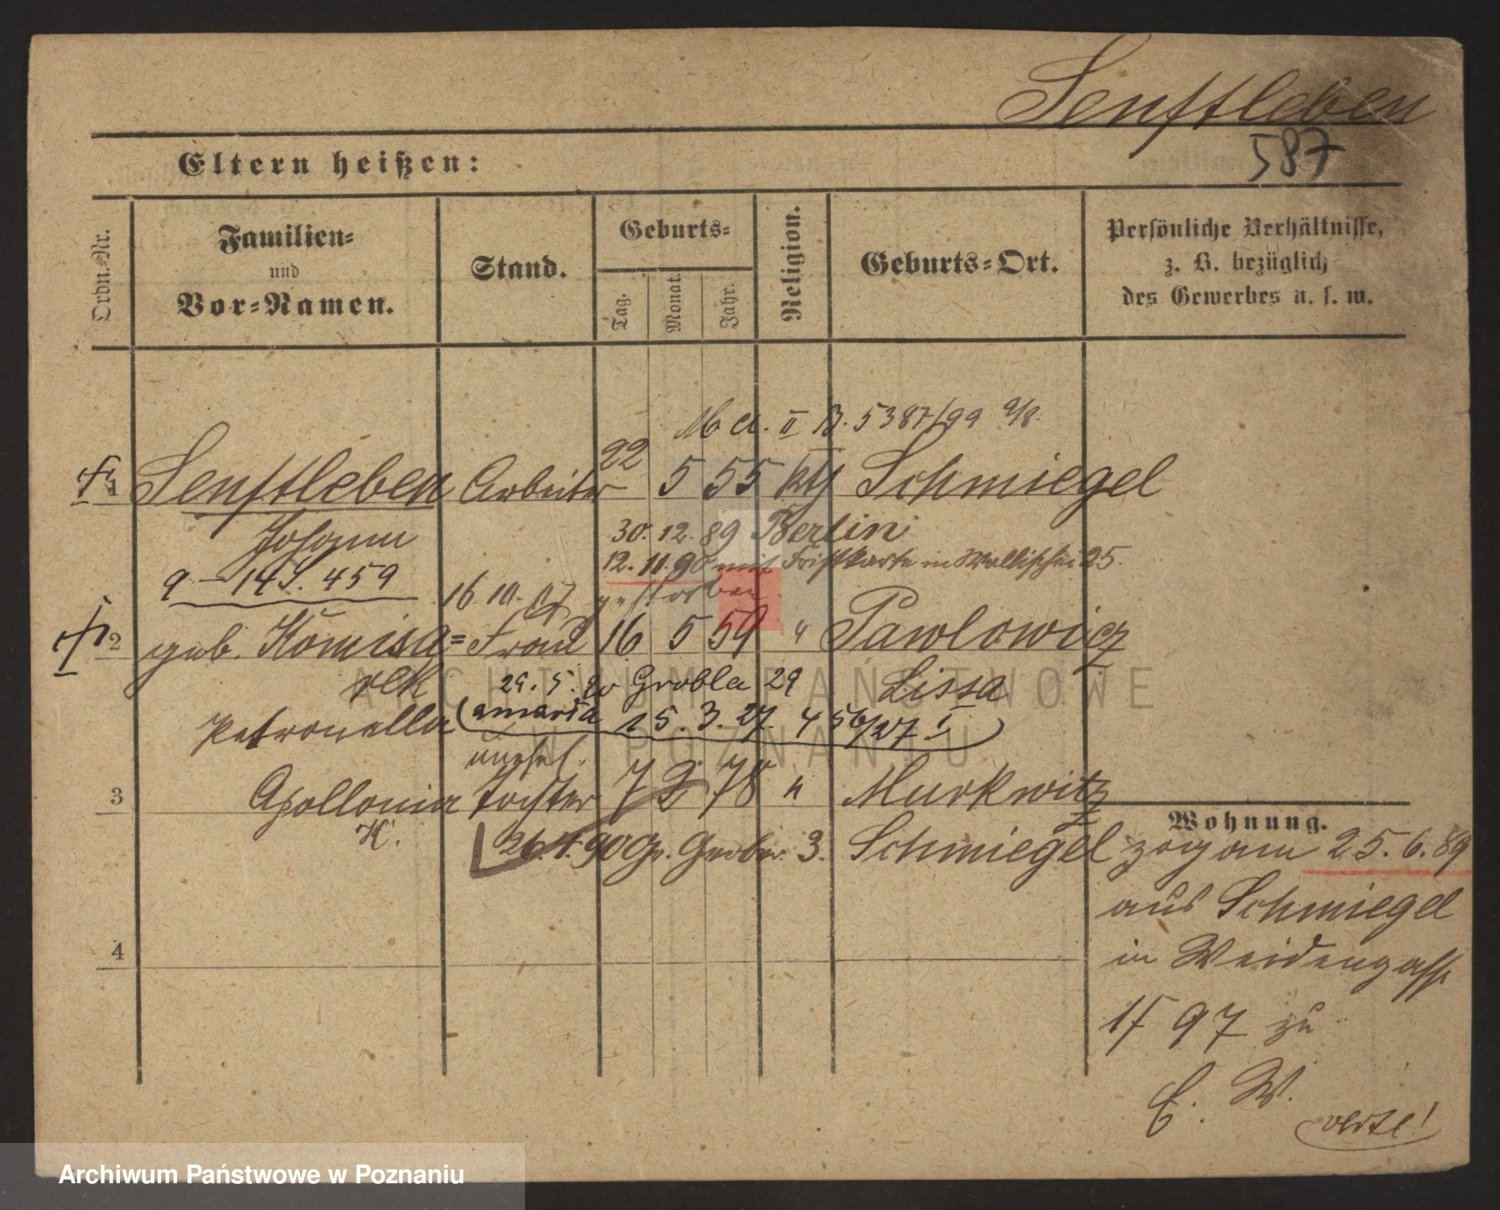 Senftleben
587
Eltern heißen:
Ordn.-Nr.
Familien-
und
Vor-Namen.
Stand.
Geburts-
Tag.
Monat.
Jahr.
Religion.
Geburts-Ort.
Persönliche Verhältnisse,
z. B. bezüglich
des Gewerbes u. s. w.
II B. 5387/99 9/8.
1 Senftleben Arbeiter 22 5 55 Schmiegel
Johann 30. 12. 89 Berlin
12. 11. 90 mit in Wallischei 25.
9 – 14 S. 459 16. 10. 07 gestorben
2 geb. Komisa= Frau 16 5 59 " Pawlowicz
rek 29. 5. 20 Grobla 29 Lissa
Petronella (zmarła 15. 3. 27. 456/27 I)
unehel.
3 Apollonia Tochter 7 2 78 " Murkwitz
K. 26. 4. 90 Gr. Gerber. 3. Schmiegel
4
Wohnung.
zog am 25. 6. 89
aus Schmiegel
in Weidengasse
1/ 97 zu
E. W.
verte!
ARCHIWUM PAŃSTWOWE
W POZNANIU
Archiwum Państwowe w Poznaniu